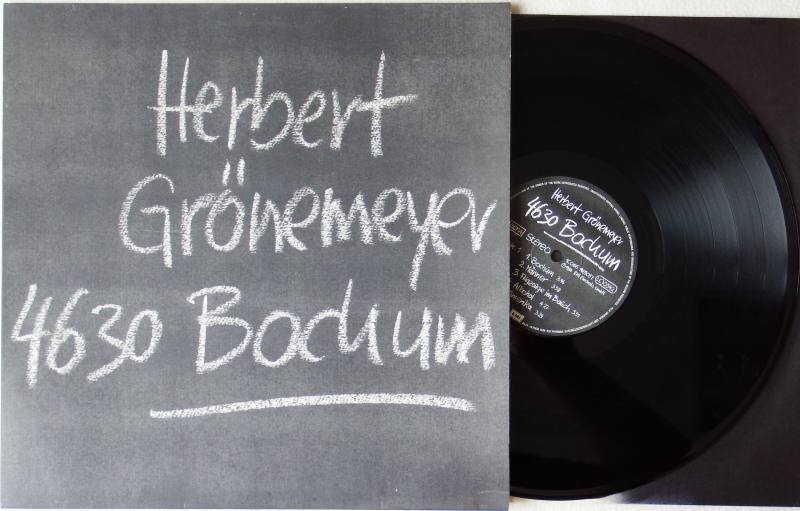 Herbert
Grönemeyer
4630 Bochum
Herbert Grönemeyer
4630 Bochum
STEREO
1. Bochum
2. Männer
3. Flugzeuge im Bauch
Alkohol
Amerika